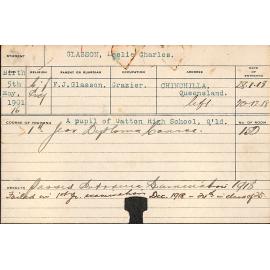 STUDENT
GLASSON, Leslie Charles.
Birth RELIGION PARENT OR GUARDIAN OCCUPATION ADDRESS DATE
5th F.J.Glasson. Grazier. CHINCHILLA,
May, Queensland.
1901 left 20.12.18
16
COURSE OF A pupil of Gatton High School, Q'ld. NO. OF ROOM
1st Year Diploma Course.
RESULTS Passed Entrance Examination 1918
Failed in 1st Yr. examination Dec. 1918 - 24th in class of 25